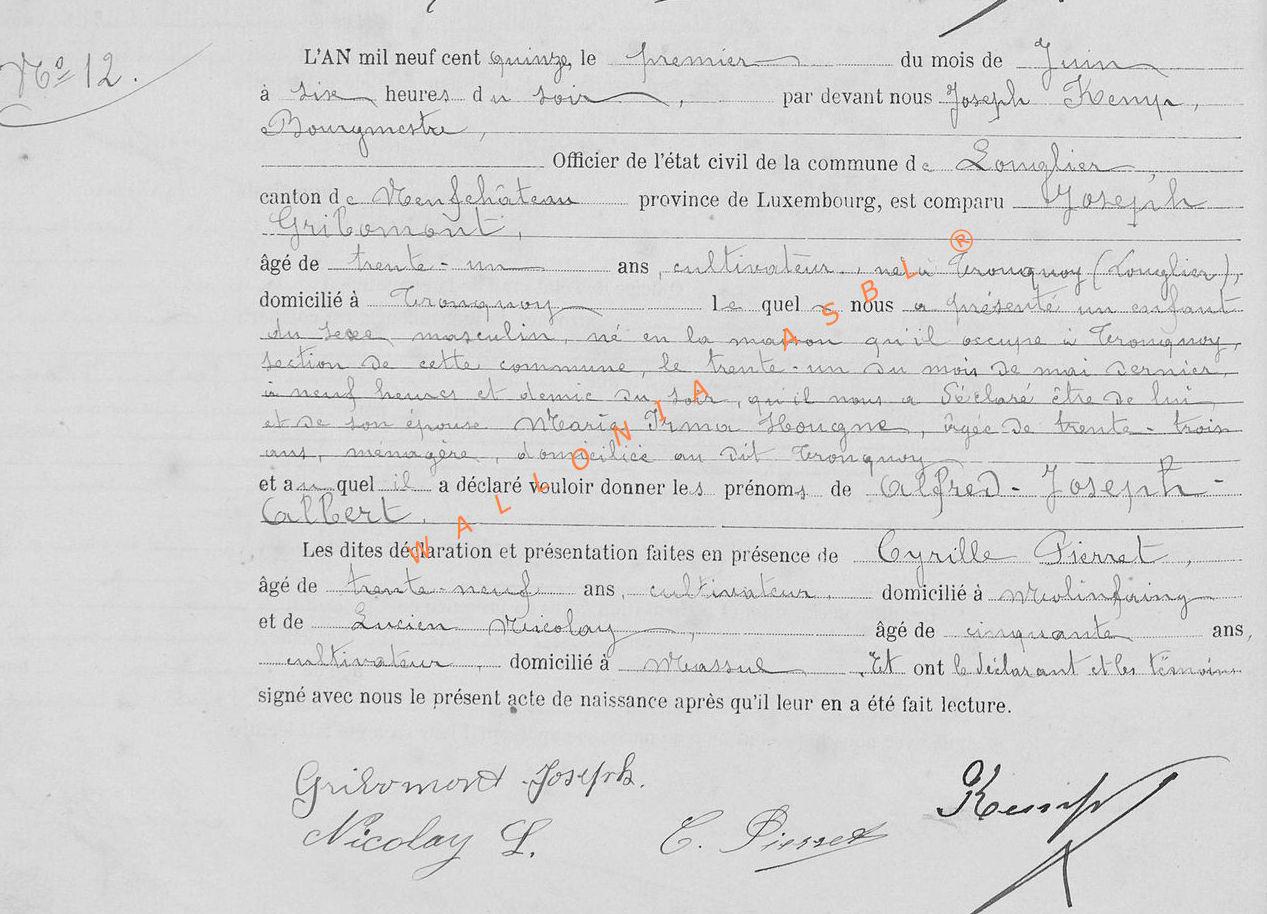 No 12.
L'AN mil neuf cent quinze, le premier du mois de Juin
à six heures du soir, par devant nous Joseph Kemp,
Bourgmestre,
Officier de l'état civil de la commune de Longlier,
canton de Neufchâteau province de Luxembourg, est comparu Joseph
Gribomont,
âgé de trente-un ans, cultivateur, né à Tronquoy (Longlier),
domicilié à Tronquoy lequel nous a présenté un enfant
du sexe masculin, né en la maison qu'il occupe à Tronquoy,
section de cette commune, le trente-un du mois de mai dernier,
à neuf heures et demie du soir, qu'il nous a déclaré être de lui
et de son épouse Marie Irma Hougne, âgée de trente-trois
ans, ménagère, domiciliée au dit Tronquoy
et auquel il a déclaré vouloir donner les prénoms de Alfred-Joseph-
Albert.
Les dites déclaration et présentation faites en présence de Cyrille Pierret,
âgé de trente-neuf ans, cultivateur, domicilié à Molinfaing
et de Lucien Nicolay, âgé de cinquante ans,
cultivateur, domicilié à Massul. Et ont le déclarant et les témoins
signé avec nous le présent acte de naissance après qu'il leur en a été fait lecture.
Gribomont Joseph.
Kemp
Nicolay L. C. Pierret
WALLONIA ASBL ®